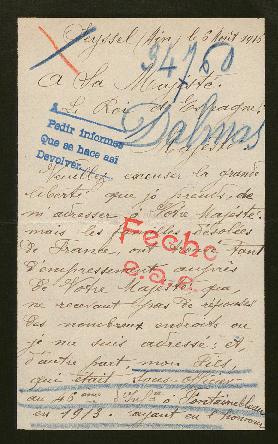 Seyssel (Ain), le 6 Août 1915
34160
A Sa Majesté
Le Roi d'Espagne.
Dalmas
Majesté
Pedir informes
Que se hace así
Devolver
Veuillez excuser la grande
liberté que je prends, de
m'adresser à Votre Majesté.
mais les familles désolées
de France, ont trouvé tant
Fecho
d'empressement auprès
de Votre Majesté, que
ne recevant pas de réponses
des nombreux endroits où
je me suis adressé; et
d'autre part mon fils,
qui était sous officier
au 46ème d'Inf. à Fontainebleau
en 1913. ayant eu l'honneur